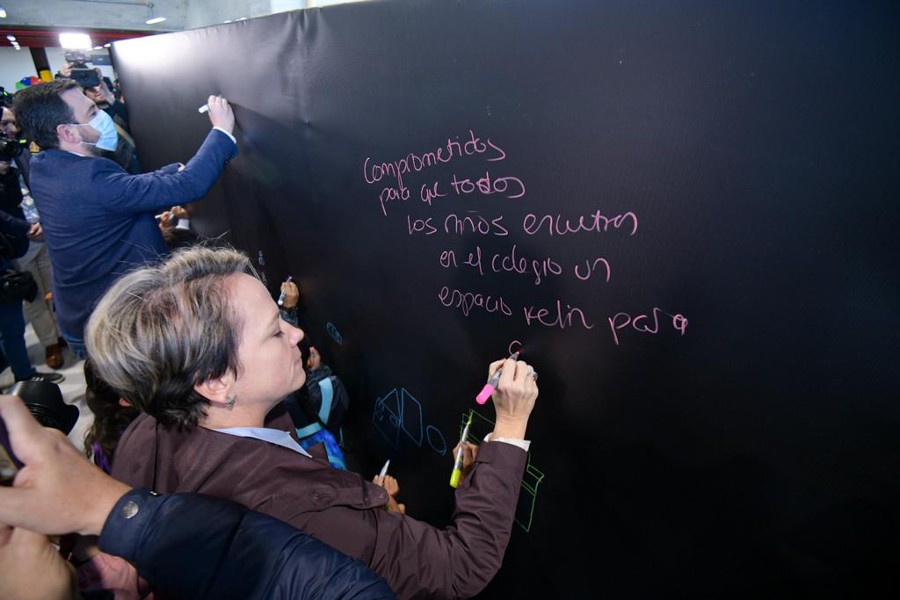 Comprometidos
para que todos
los niños encuetran
en el colegio un
espacio para